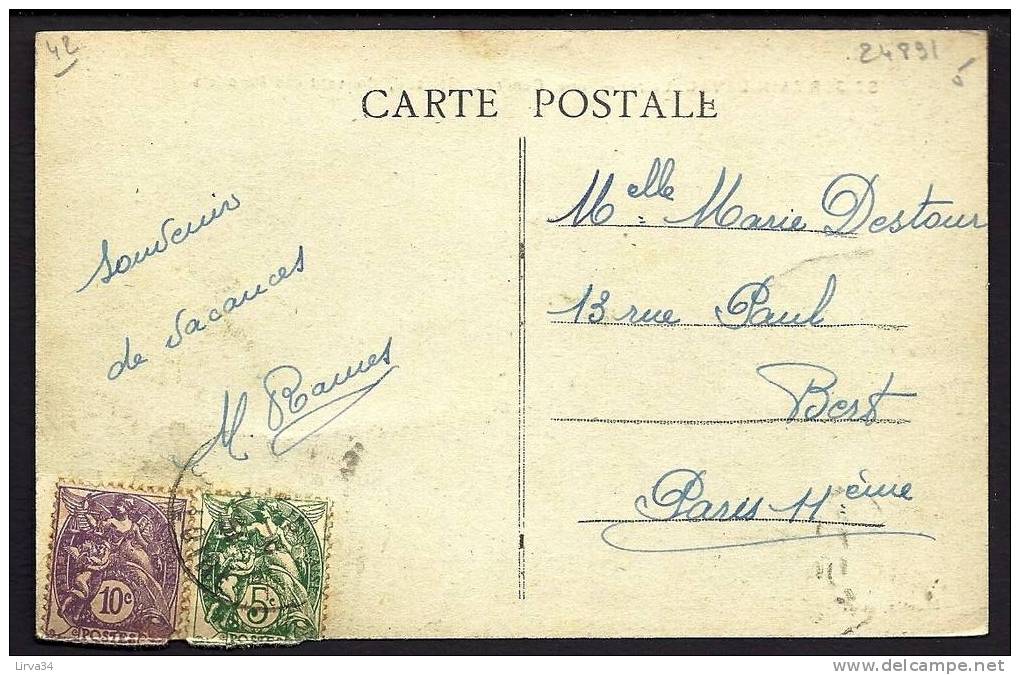 42
24891
CARTE POSTALE
Souvenir
de vacances
M. Rames
Melle Marie Destour
13 rue Paul
Bert
Paris 11ème
10c
POSTES
5c
POSTES
Lirva34
www.delcampe.net